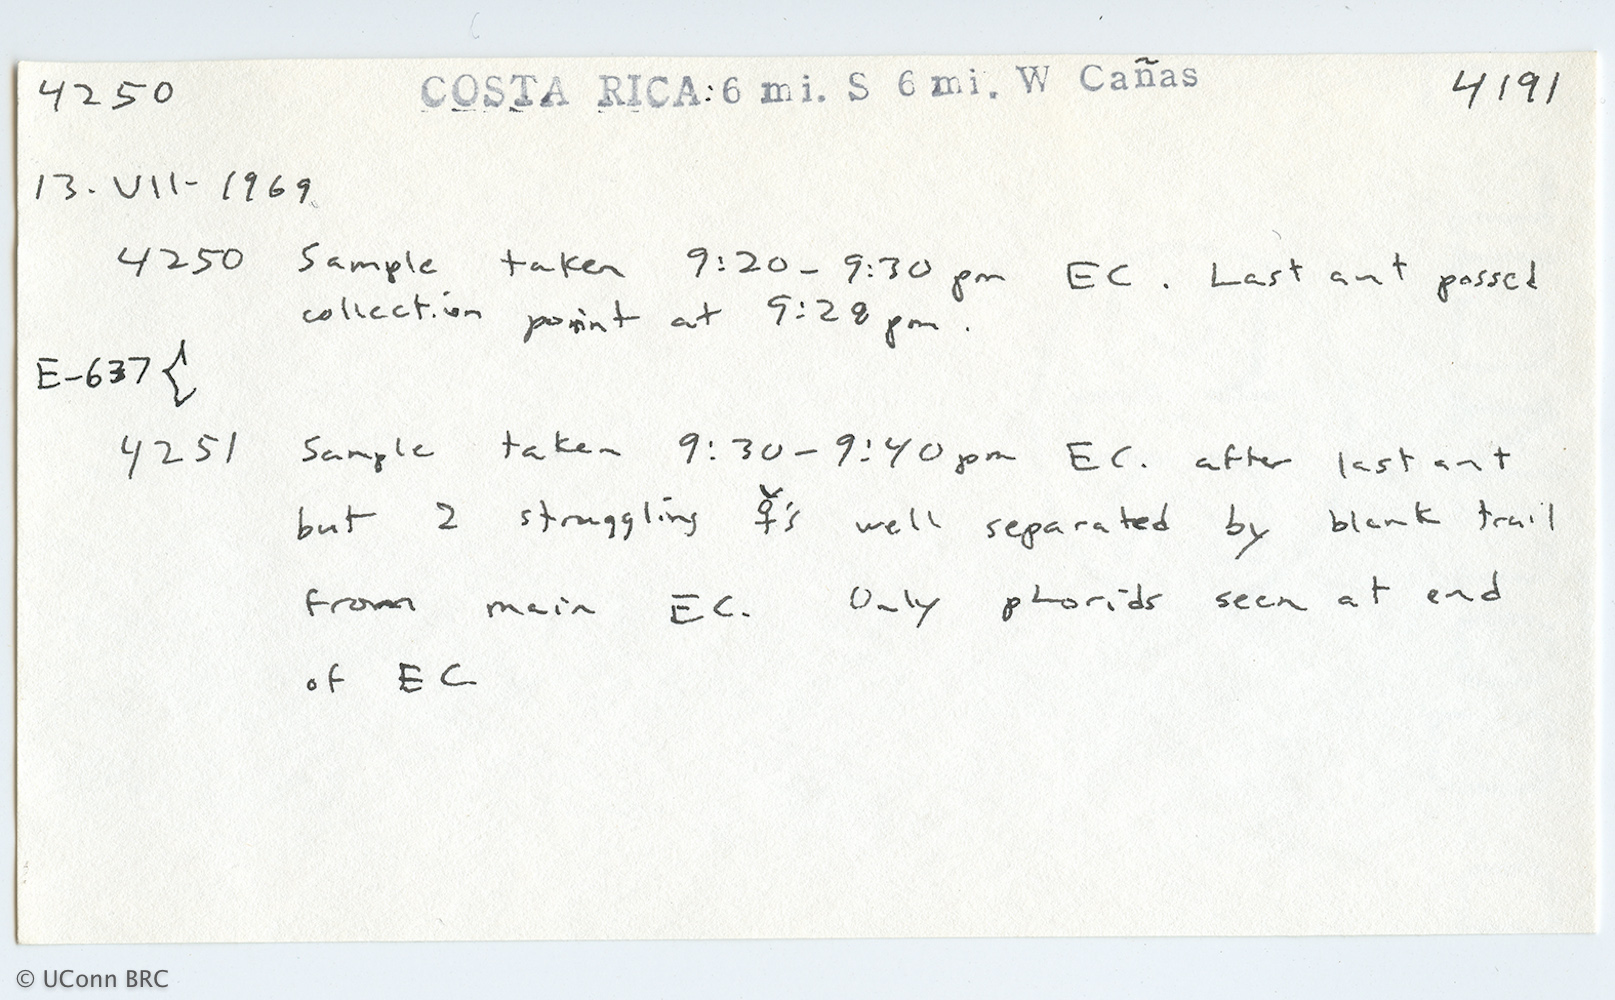 4250 COSTA RICA: 6 mi. S 6 mi. W Cañas 4191
13. VII- 1969
4250 Sample taken 9:20 - 9:30 pm EC. Last ant passed
collection point at 9:28 pm.
E-637 {
4251 Sample taken 9:30 - 9:40 pm EC. after last ant
but 2 struggling ☿'s well separated by blank trail
from main EC. Only phorids seen at end
of EC
© UConn BRC